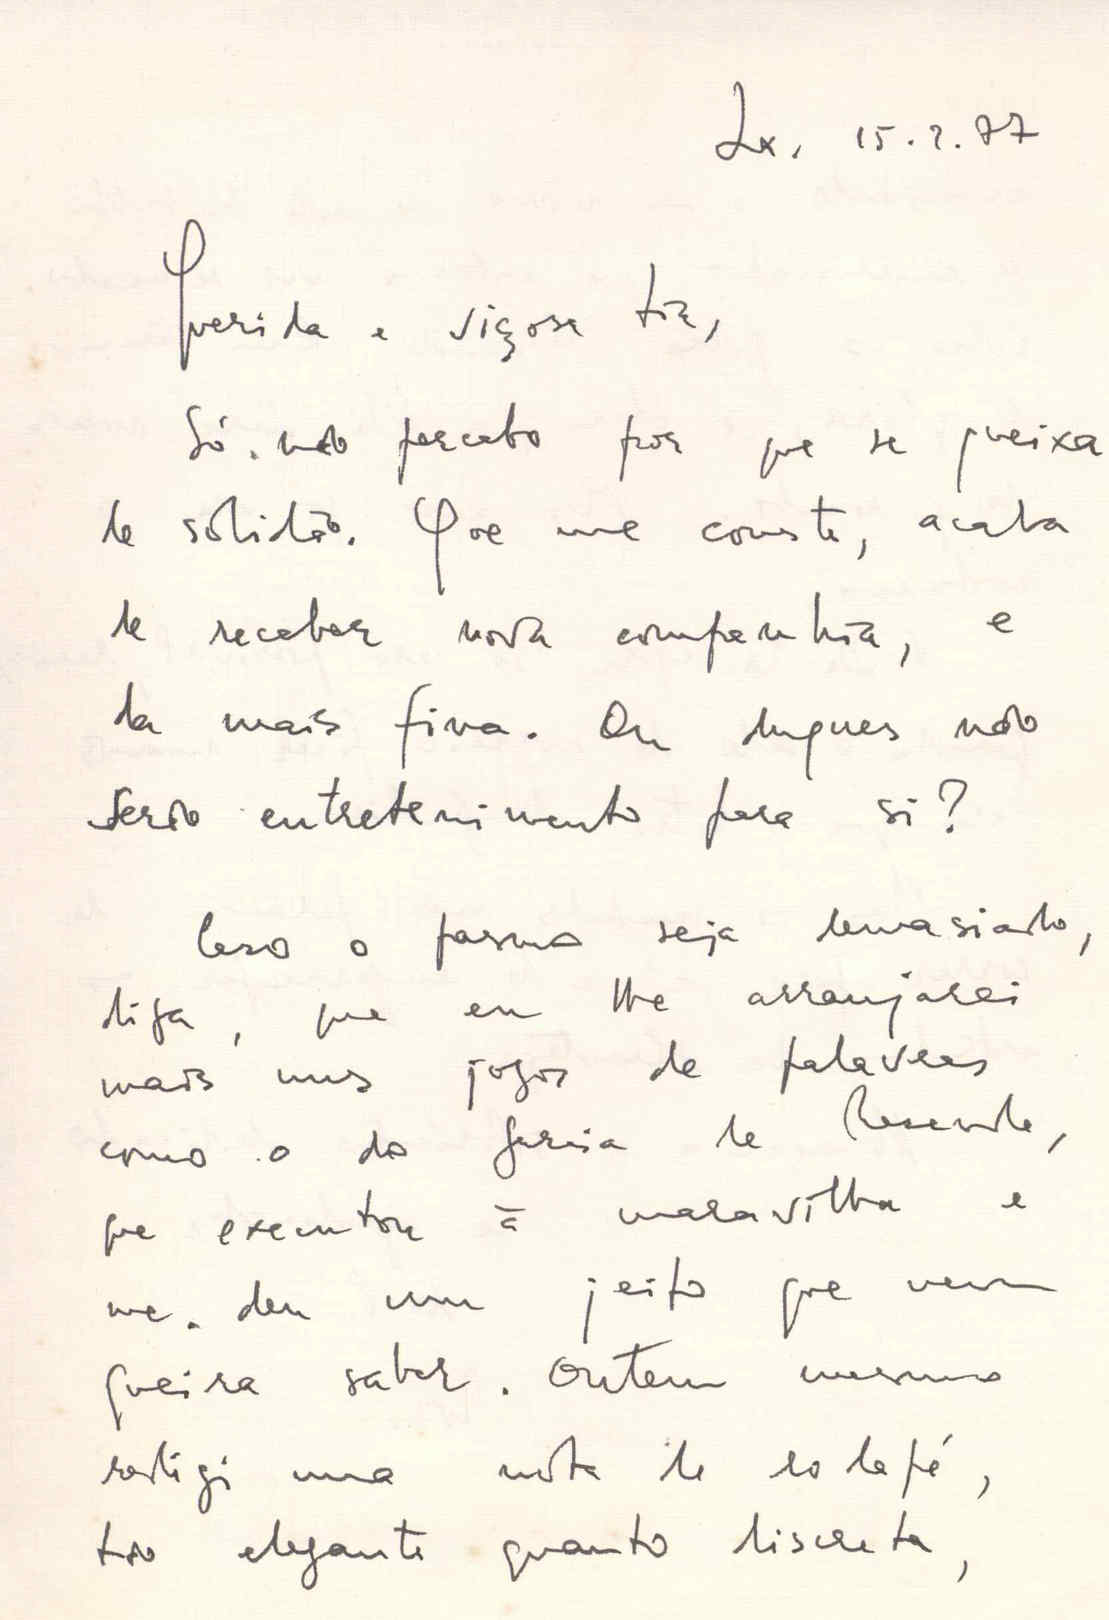 Lx. 15.2.87
Querida e viçosa tia,
Só não percebo por que se queixa
de solidão. Que me conste, acaba
de receber nova companhia, e
da mais fina. Ou não
serão entretenimento para si?
Caso o pasmo seja demasiado,
diga, que eu lhe arranjarei
mais uns jogos de palavras
como o do Garcia de Resende,
que executou à maravilha e
me deu um jeito que nem
queira saber. Ontem mesmo
redigi uma nota de rodapé,
tão elegante quanto discreta,